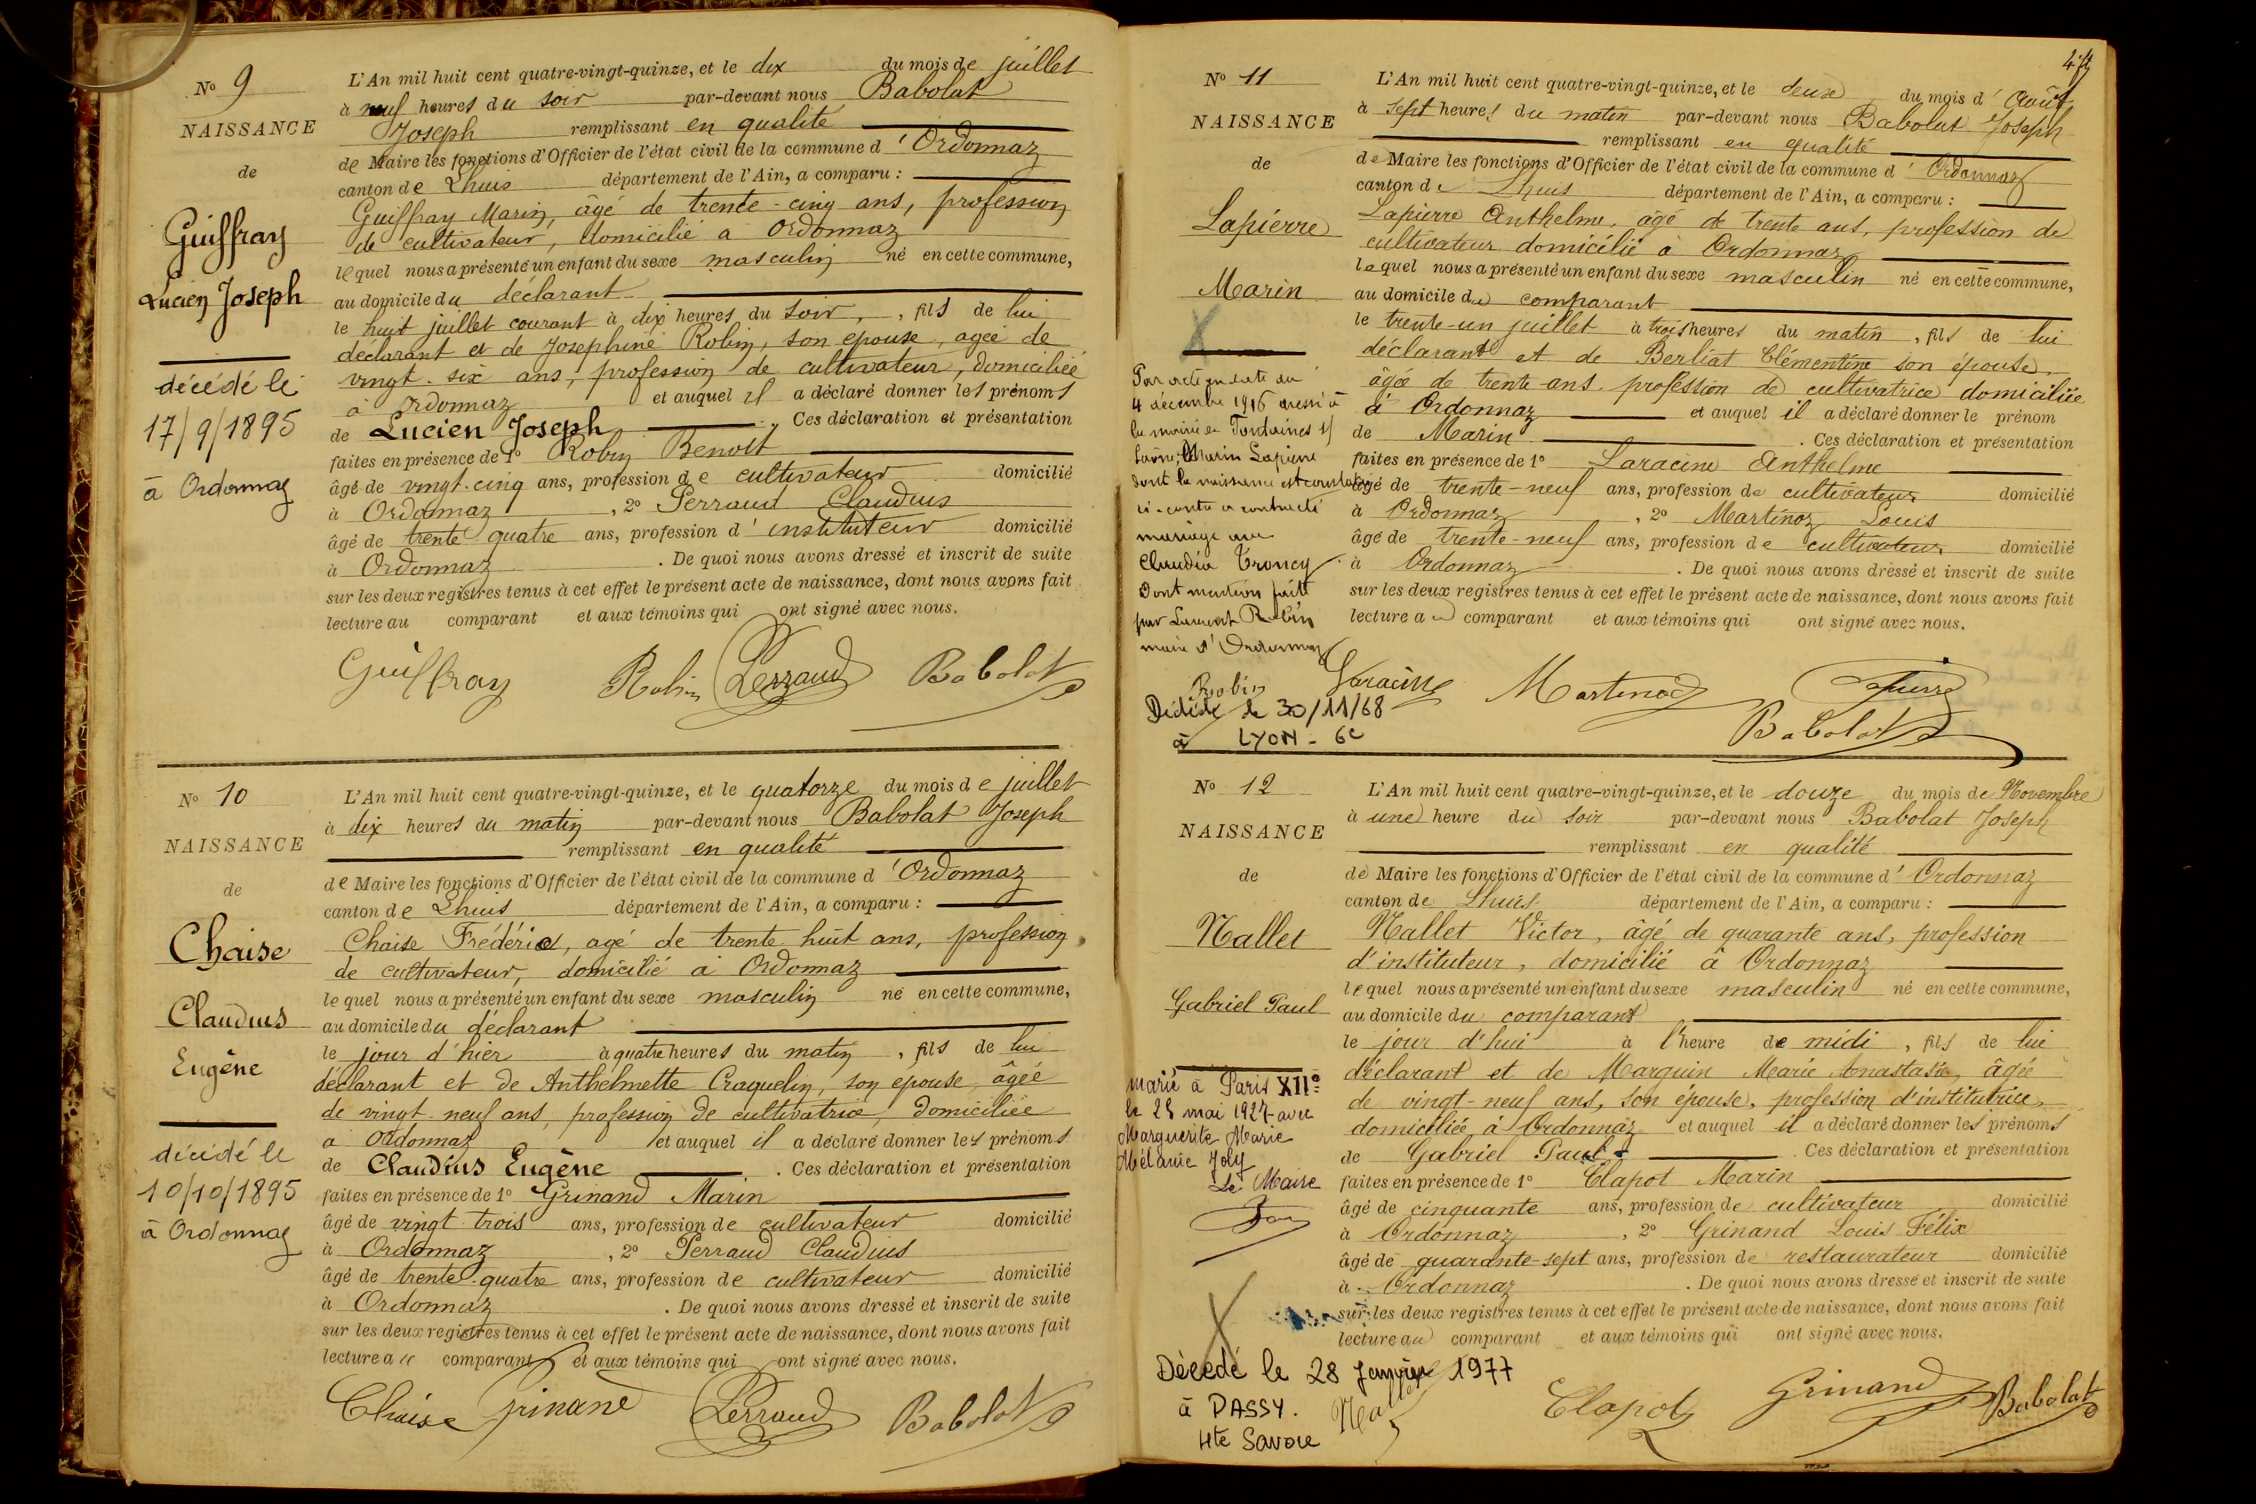 No 9
NAISSANCE
de
Guiffray
Lucien Joseph
décédé le
17/9/1895
à Ordonnaz
L'An mil huit cent quatre-vingt-quinze, et le dix du mois de juillet
à neuf heures du soir par-devant nous Babolat
Joseph remplissant en qualité
de Maire les fonctions d'Officier de l'état civil de la commune d'Ordonnaz
canton de Lhuis département de l'Ain, a comparu :
Guiffray Marin, âgé de trente-cinq ans, profession
de cultivateur, domicilié à Ordonnaz
lequel nous a présenté un enfant du sexe masculin né en cette commune,
au domicile du déclarant
le huit juillet courant à dix heures du soir, , fils de lui
déclarant et de Josephine Robin, son epouse, agée de
vingt-six ans, profession de cultivateur, domiciliée
à Ordonnaz et auquel il a déclaré donner les prénoms
de Lucien Joseph . Ces déclaration et présentation
faites en présence de 1o Robin Benoît
âgé de vingt-cinq ans, profession de cultivateur domicilié
à Ordonnaz , 2o Perraud Claudius
âgé de trente quatre ans, profession d'instituteur domicilié
à Ordonnaz . De quoi nous avons dressé et inscrit de suite
sur les deux registres tenus à cet effet le présent acte de naissance, dont nous avons fait
lecture au comparant et aux témoins qui ont signé avec nous.
Guiffray Robin Perraud Babolat
No 10
NAISSANCE
de
Chaise
Claudius
Eugène
décédé le
10/10/1895
à Ordonnaz
L'An mil huit cent quatre-vingt-quinze, et le quatorze du mois de juillet
à dix heures du matin par-devant nous Babolat Joseph
remplissant en qualité
de Maire les fonctions d'Officier de l'état civil de la commune d'Ordonnaz
canton de Lhuis département de l'Ain, a comparu :
Chaise Frédéric, agé de trente huit ans, profession
de cultivateur, domicilié à Ordonnaz
lequel nous a présenté un enfant du sexe masculin né en cette commune,
au domicile du déclarant
le jour d'hier à quatre heures du matin , fils de lui
déclarant et de Anthelmette Craquelin, son epouse, âgée
de vingt-neuf ans, profession de cultivatrice, domiciliée
a Ordonnaz et auquel il a déclaré donner les prénoms
de Claudius Eugène . Ces déclaration et présentation
faites en présence de 1o Grinand Marin
âgé de vingt trois ans, profession de cultivateur domicilié
à Ordonnaz , 2o Perraud Claudius
âgé de trente-quatre ans, profession de cultivateur domicilié
à Ordonnaz . De quoi nous avons dressé et inscrit de suite
sur les deux registres tenus à cet effet le présent acte de naissance, dont nous avons fait
lecture au comparant et aux témoins qui ont signé avec nous.
Chaise Grinand Perraud Babolat
No 11
NAISSANCE
de
Lapierre
Marin
Par acte en date du
4 décembre 1916 dressé à
la mairie de Fontaines s/
Saône, Marin Lapierre
dont la naissance est constatée
ci-contre a contracté
mariage avec
Claudia Troncy.
Dont mention faite
par Laurent Robin
maire d'Ordonnaz
Robin
Décédé le 30/11/68
à LYON - 6e
L'An mil huit cent quatre-vingt-quinze, et le deux du mois d'Août
à sept heures du matin par-devant nous Babolat Joseph
remplissant en qualité
de Maire les fonctions d'Officier de l'état civil de la commune d'Ordonnaz
canton de Lhuis département de l'Ain, a comparu :
Lapierre Anthelme, âgé de trente ans, profession de
cultivateur domicilié à Ordonnaz
lequel nous a présenté un enfant du sexe masculin né en cette commune,
au domicile du comparant
le trente-un juillet à trois heures du matin , fils de lui
déclarant et de Berliat Clémentine son épouse,
âgée de trente ans profession de cultivatrice domiciliée
à Ordonnaz et auquel il a déclaré donner le prénom
de Marin . Ces déclaration et présentation
faites en présence de 1o Laracine Anthelme
âgé de trente-neuf ans, profession de cultivateur domicilié
à Ordonnaz , 2o Martinoz Louis
âgé de trente-neuf ans, profession de cultivateur domicilié
à Ordonnaz . De quoi nous avons dressé et inscrit de suite
sur les deux registres tenus à cet effet le présent acte de naissance, dont nous avons fait
lecture au comparant et aux témoins qui ont signé avec nous.
Laracine Martinod Lapierre
Babolat
No 12
NAISSANCE
de
Nallet
Gabriel Paul
marié à Paris XIIe
le 28 mai 1927 avec
Marguerite Marie
Mélanie Joly
Le Maire
Décédé le 28 Janvier 1977
à PASSY.
Hte Savoie
L'An mil huit cent quatre-vingt-quinze, et le douze du mois de Novembre
à une heure du soir par-devant nous Babolat Joseph
remplissant en qualité
de Maire les fonctions d'Officier de l'état civil de la commune d'Ordonnaz
canton de Lhuis département de l'Ain, a comparu :
Nallet Victor, âgé de quarante ans, profession
d'instituteur, domicilié à Ordonnaz
lequel nous a présenté un enfant du sexe masculin né en cette commune,
au domicile du comparant
le jour d'hui à l'heure de midi , fils de lui
déclarant et de Marguin Marie Anastasie, âgée
de vingt-neuf ans, son épouse, profession d'institutrice,
domiciliée à Ordonnaz et auquel il a déclaré donner les prénoms
de Gabriel Paul . Ces déclaration et présentation
faites en présence de 1o Clapot Marin
âgé de cinquante ans, profession de cultivateur domicilié
à Ordonnaz , 2o Grinand Louis Félix
âgé de quarante-sept ans, profession de restaurateur domicilié
à Ordonnaz . De quoi nous avons dressé et inscrit de suite
sur les deux registres tenus à cet effet le présent acte de naissance, dont nous avons fait
lecture au comparant et aux témoins qui ont signé avec nous.
Nallet Clapot Grinand Babolat